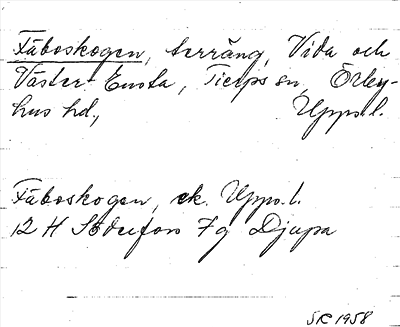 Fäboskogen, terräng, Vida och
Väster Ensta, Tierps sn, Örby-
hus hd., Uppl.
Fäboskogen, ek. Uppl.
12 H Söderfors 7g Djupa
SR 1958